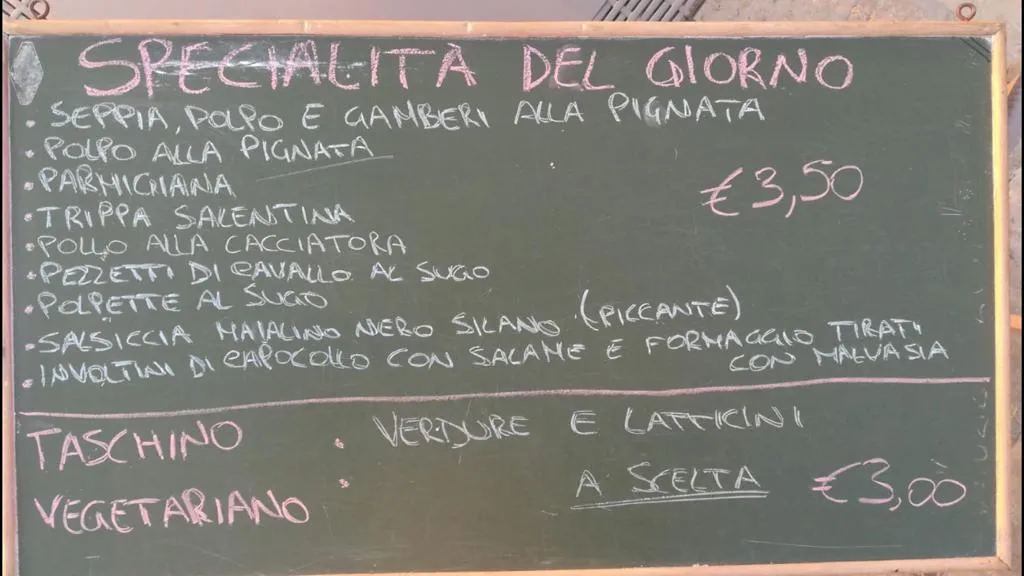 SPECIALITÀ DEL GIORNO
• SEPPIA, POLPO E GAMBERI ALLA PIGNATA
• POLPO ALLA PIGNATA
• PARMIGIANA
€3,50
• TRIPPA SALENTINA
• POLLO ALLA CACCIATORA
• PEZZETTI DI CAVALLO AL SUGO
• POLPETTE AL SUGO
• SALSICCIA MAIALINO NERO SILANO (PICCANTE)
• INVOLTINI DI CAPOCOLLO CON SALAME E FORMAGGIO TIRATI
CON MALVASIA
TASCHINO : VERDURE E LATTICINI
VEGETARIANO A SCELTA €3,00